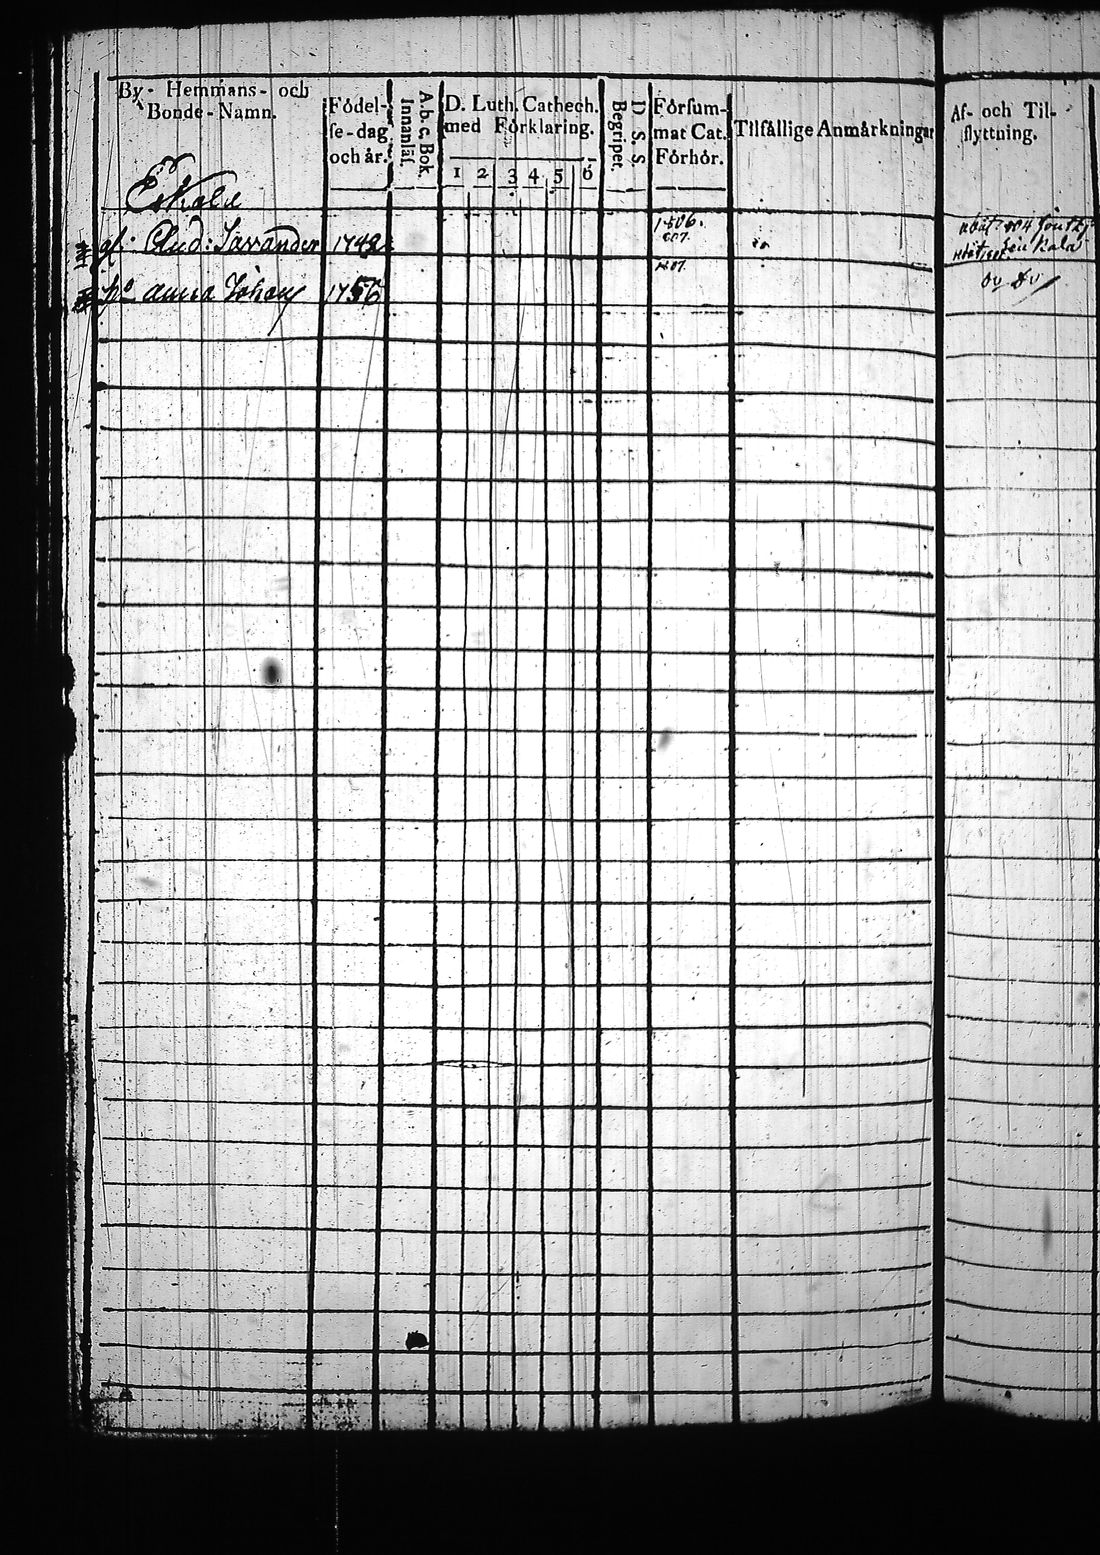 By- Hemmans- och Bonde-Namn.
Födel-se-dag och år.
A.b.c. Bok. Innanläs.
D. Luth. Cathech. med Förklaring.
1 2 3 4 5 6
D. S. S. Begripet.
Försum-mat Cat. Förhör.
Tilfällige Anmärkningar
Af- och Til-flyttning.
Eskola
And: Savander 1748 1806. 807.
anna Johan 1756 807.